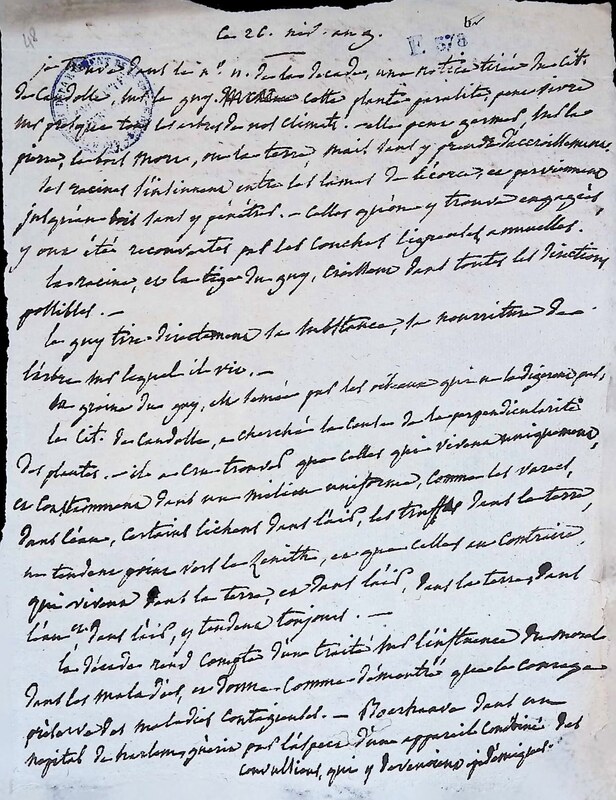 48
Le 26 niv. an 9.
E 378
je trouve dans le n.° 11. de la decade, une notice tirée du cit.
de Candolle, sur le guy. cette plante parasite, peut vivre
sur presque tous les arbres de nos climats. - elle peut germer, sur la
pierre, le bois mort, ou la terre, mais sans y prendre d'accroissement.
les racines s'insinuent entre les lames de l'écorce, et parviennent
jusqu'au bois sans y pénétrer. - celles qu'on y trouve engagées,
y ont été recouvertes par les couches ligneuses annuelles.
la racine, et la tige du guy, croissent dans toutes les directions
possibles. -
le guy tire directement sa substance, sa nourriture de
l'arbre sur lequel il vit. -
la graine du guy, est semée par les oiseaux qui ne la digerent pas.
le Cit. de Candolle, a cherché la cause de la perpendicularité
des plantes. - il a cru trouver que celles qui vivent uniquement,
et constamment dans un milieu uniforme, comme les varecs,
dans l'eau, certains lichens dans l'air, les truffes dans la terre,
ne tendent point vers le Zenith, et que celles au contraire,
qui vivent dans la terre, et dans l'air, dans la terre, dans
l'eau et dans l'air, y tendent toujours. -
la décade rend compte d'un traité sur l'influence du moral
dans les maladies, et donne comme démontré que le courage
préserve des maladies contagieuses. - Boerhaave dans un
hopital de harlem, guerit par l'aspect d'un appareil combiné des
convulsions, qui y devenoient epidemiques.